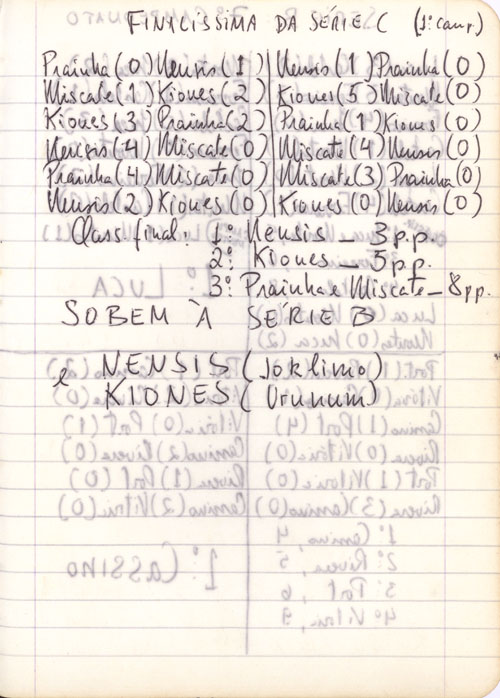 FINALÍSSIMA DA SÉRIE C (1º camp.)
Prainha (0) Nensis (1) | Nensis (1) Prainha (0)
Miscate (1) Kiones (2) | Kiones (5) Miscate (0)
Kiones (3) Prainha (2) | Prainha (1) Kiones (0)
Nensis (4) Miscate (0) | Miscate (4) Nensis (0)
Prainha (4) Miscate (0) | Miscate (3) Prainha (0)
Nensis (2) Kiones (0) | Kiones (0) Nensis (0)
Class. final: 1º Nensis _ 3 p.p.
2º Kiones _ 5 p.p.
3º Prainha e Miscate _ 8 pp.
SOBEM À SÉRIE B
NENSIS (Joklimo)
e KIONES (Urunum)